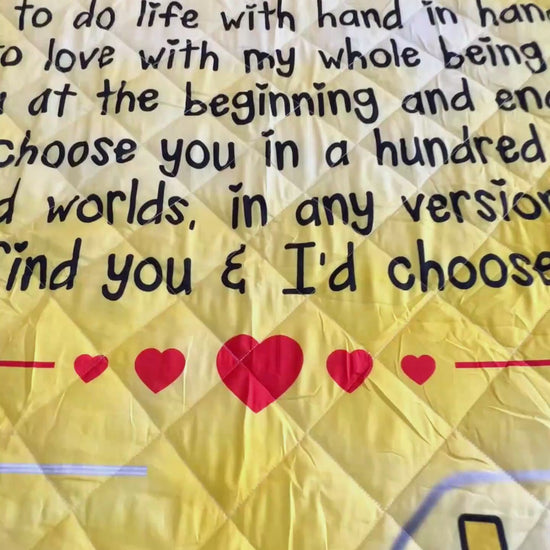 to do life with hand in han
o love with my whole being
at the beginning and en
choose you in a hundred
d worlds, in any version
find you & I'd choose